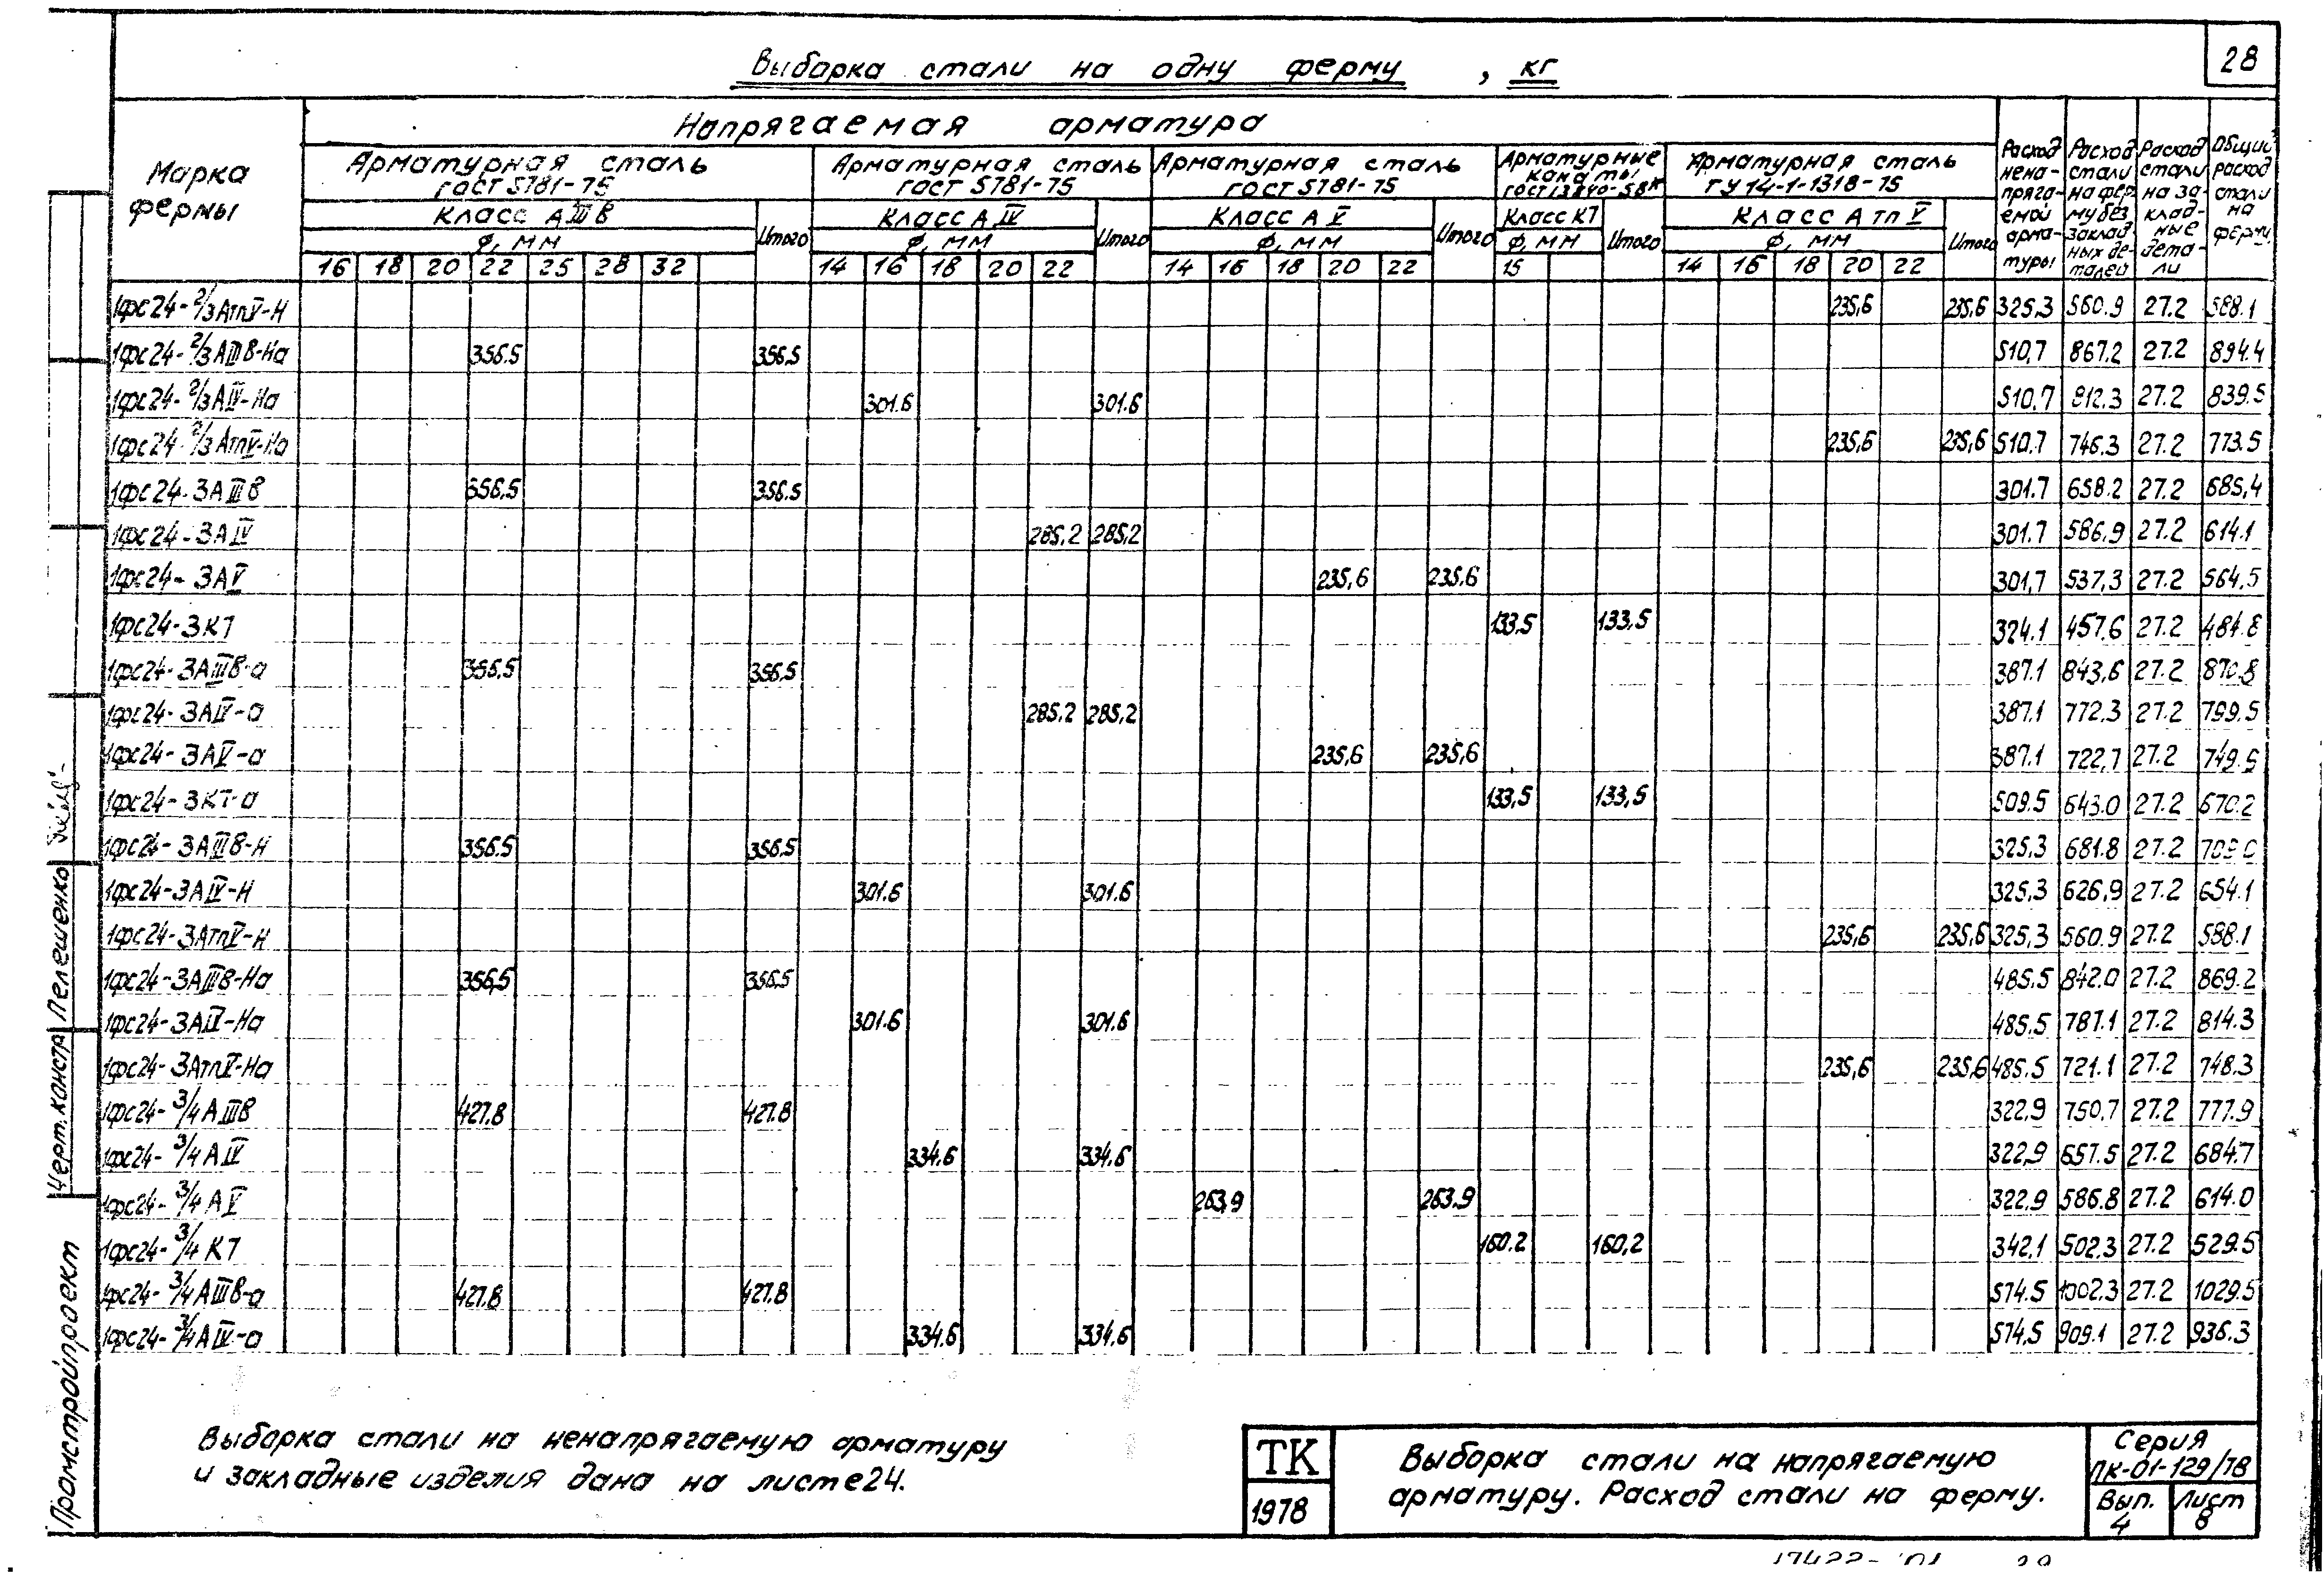 28
Выборка стали на одну ферму , кг
Марка фермы
Напрягаемая арматура
Арматурная сталь ГОСТ 5781-75
Арматурная сталь ГОСТ 5781-75
Арматурная сталь ГОСТ 5781-75
Арматурные канаты
Арматурная сталь ТУ 14-1-1318-75
Расход ненапрягаемой арматуры
Расход стали на ферму без закладных деталей
Расход стали на закладные детали
Общий расход стали на ферму
Класс АIIIв Итого Класс АIV Итого Класс АV Итого Класс К7 Итого Класс АтпV Итого
φ, мм φ, мм φ, мм φ, мм φ, мм
16 18 20 22 25 28 32 14 16 18 20 22 14 16 18 20 22 15 14 16 18 20 22
1фс24-2/3АтпV-Н 235,6 235,6 325,3 560.9 27.2 588.1
1фс24-2/3АIIIв-На 356.5 356.5 510,7 867.2 27.2 894.4
1фс24-2/3АIV-На 301.6 301.6 510,7 812.3 27.2 839.5
1фс24-2/3АтпV-На 235,6 235,6 510.7 746.3 27.2 773.5
1фс24-3АIIIв 356,5 356.5 301.7 658.2 27.2 685,4
1фс24-3АIV 285,2 285,2 301.7 586,9 27.2 614.1
1фс24-3АV 235,6 235.6 301,7 537,3 27.2 564.5
1фс24-3К7 133,5 133,5 324.1 457.6 27.2 484.8
1фс24-3АIIIв-а 356,5 356,5 387.1 843,6 27.2 870.8
1фс24-3АIV-а 285,2 285,2 387.1 772.3 27.2 799.5
1фс24-3АV-а 235,6 235,6 387.1 722,7 27.2
1фс24-3К7-а 133,5 133,5 509.5 643.0 27.2 670.2
1фс24-3АIIIв-Н 356.5 356.5 325,3 681.8 27.2
1фс24-3АIV-Н 301.6 301.6 325,3 626,9 27.2 654.1
1фс24-3АтпV-Н 235,6 235,6 325,3 560.9 27.2 588.1
1фс24-3АIIIв-На 356,5 356.5 485.5 842.0 27.2 869.2
1фс24-3АIV-На 301.6 301.6 485.5 787.1 27.2 814.3
1фс24-3АтпV-На 235,6 235,6 485.5 721.1 27.2 748.3
1фс24-3/4АIIIв 427.8 427.8 322,9 750,7 27.2 777.9
1фс24-3/4АIV 334.6 334.6 322,9 657.5 27.2 684.7
1фс24-3/4АV 263,9 263.9 322.9 586.8 27.2 614.0
1фс24-3/4К7 160.2 160,2 342,1 502.3 27.2 529.5
1фс24-3/4АIIIв-а 427.8 427.8 574.5 1002.3 27.2 1029.5
1фс24-3/4АIV-а 334.6 334.6 574,5 909.1 27.2 936.3
Выборка стали на ненапрягаемую арматуру
и закладные изделия дана на листе 24.
ТК
1978
Выборка стали на напрягаемую
арматуру. Расход стали на ферму.
Серия
ПК-01-129/78
Вып. 4
Лист 8
Промстройпроект
Черт. констр Пелешенко